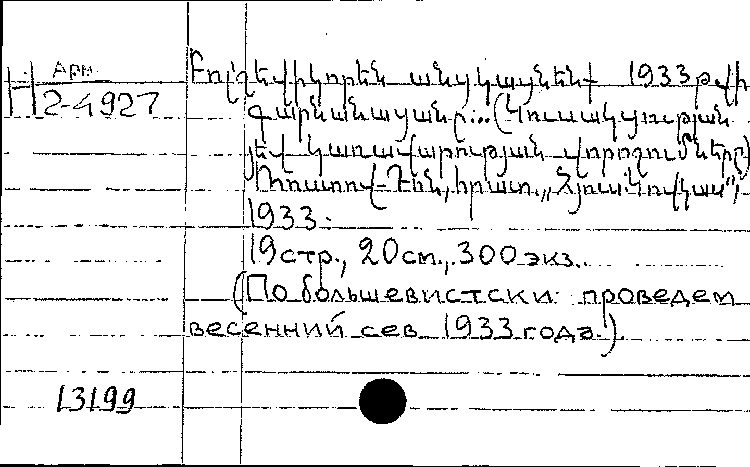 Арм.
Н 2-4927
Բոլշեվիկորեն անցկացնենք 1933 թ վի
գարնանացանը... (Կուսակցության
յեվ կառավարության վորոշումները)
Ռոստով-Դոն, հրատ.,
1933.
19 стр., 20 см., 300 экз.
(По большевистски проведем
весенний сев 1933 года.).
13199